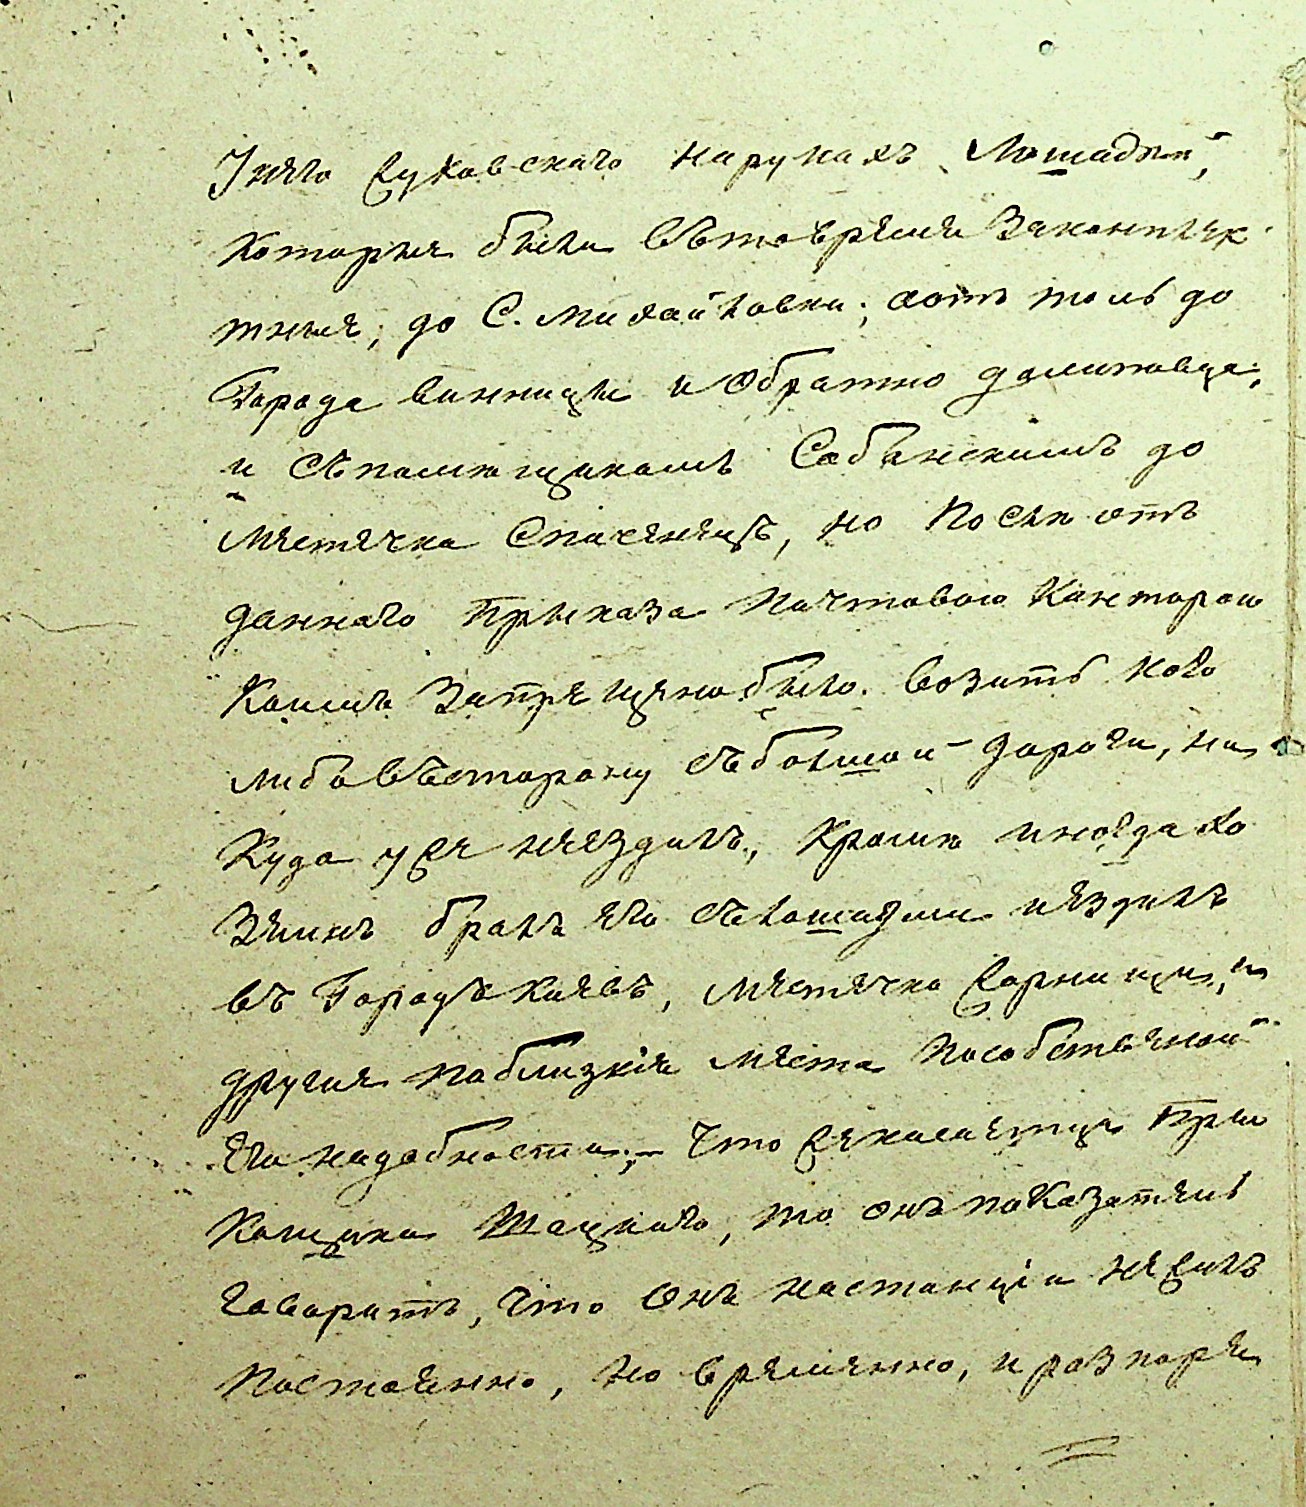 Унего Суковскаго нарукахъ Лошадѣй,
Которые были вътовремя Законплек-
тные, до С. Михайловки; аотъ толь до
Города винницы и Обратно долитовца;
и съпомѣщикомъ Собанскимъ до
Местечка Спиченецъ, но После отъ
даннаго Приказа Почтовою Канторою
Коимъ Запрещенобыло возить кого
либо въсторону събольшой дороги, ни
Куда уже неездилъ, Кроме иногда Хо
Зяинъ бралъ его съЛошадми иездилъ
въ Городъ Киевъ, местечко Сорнищи, и
другия поблизкія места Пособственой
Его надобности; – Что Секасаетца При
Кащика Шацкаго, то онъ показатель
Говоритъ, что Онъ настанціи не жилъ
Постоянно, но временно, и распоре